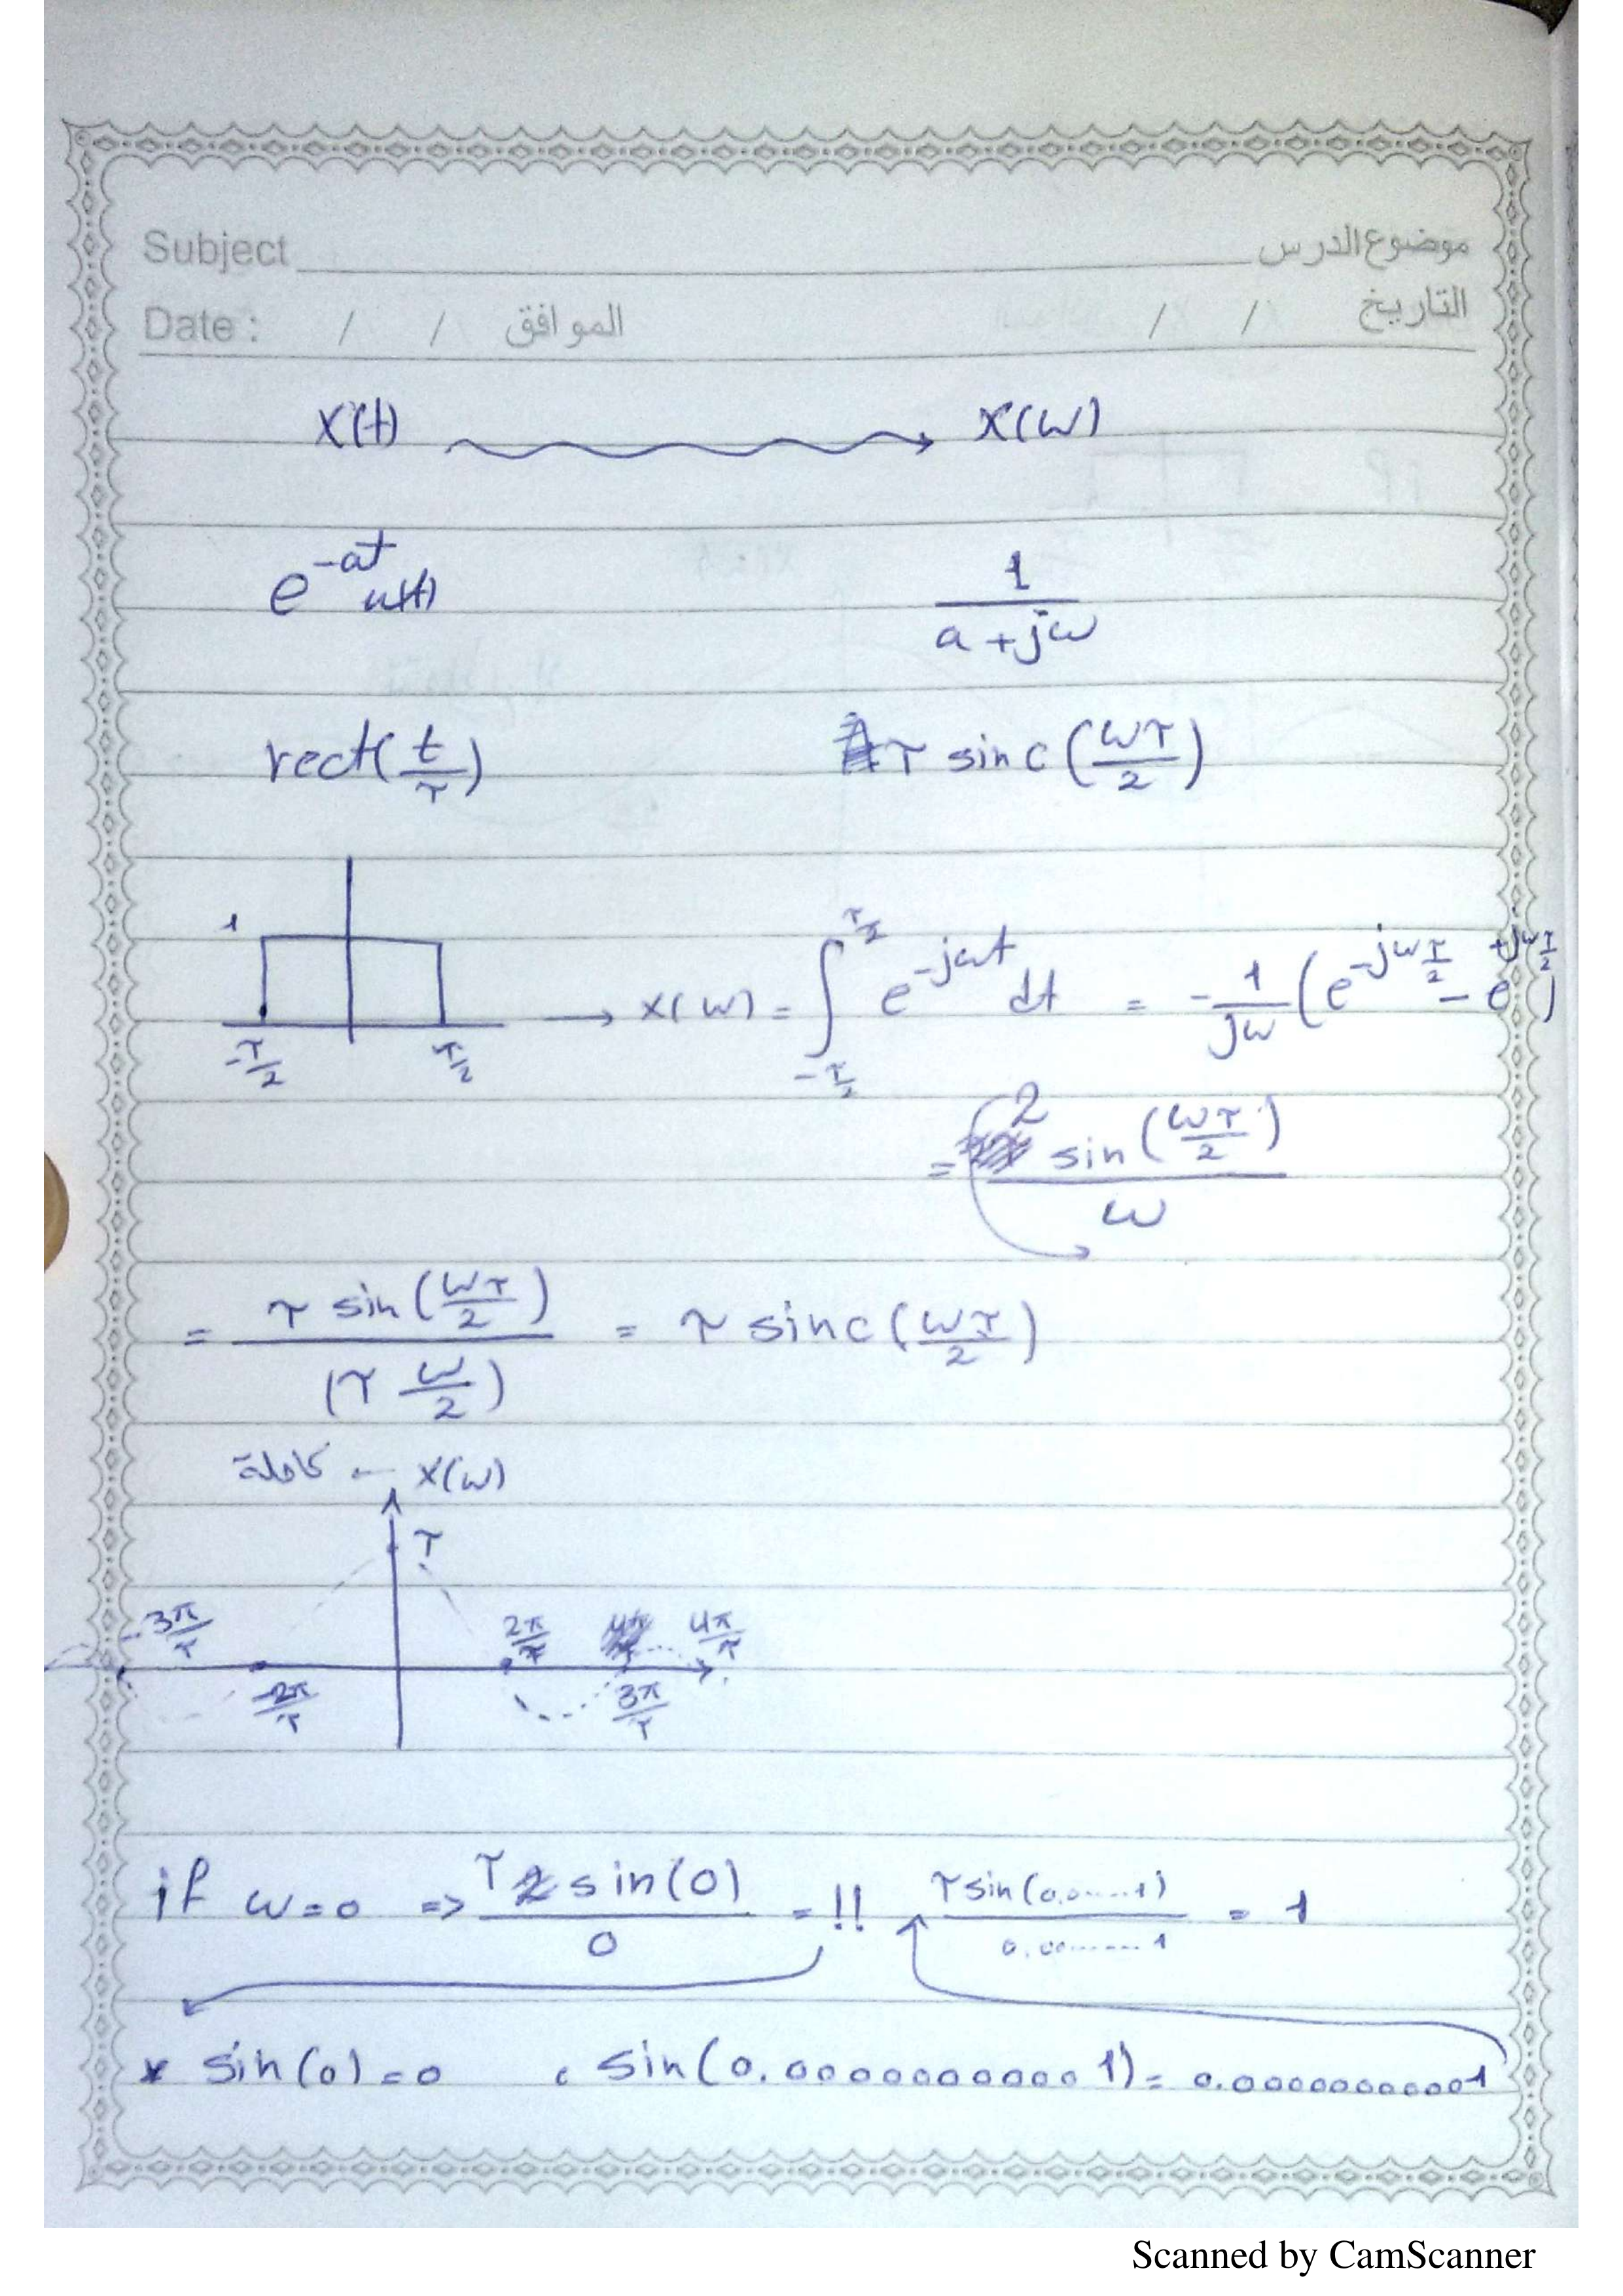 Subject موضوع الدرس
Date : / / الموافق / / التاريخ
x(t) x(ω)
e^{-at} u(t) 1/(a+jω)
rect(t/τ) τ sinc(ωτ/2)
1
-τ/2 τ/2 → x(ω) = ∫_{-τ/2}^{τ/2} e^{-jωt} dt = -1/jω (e^{-jωτ/2} - e^{+jωτ/2})
= 2 sin(ωτ/2)/ω
= τ sin(ωτ/2)/(τ ω/2) = τ sinc(ωτ/2)
كاملة ← x(ω)
τ
-3π/τ 2π/τ 4π/τ
-2π/τ 3π/τ
if ω=0 => τ sin(0)/0 = !! τ sin(0.0.....1)/0.00.......1 = 1
* sin(0)=0 ، sin(0.00000000001)= 0.00000000001
Scanned by CamScanner